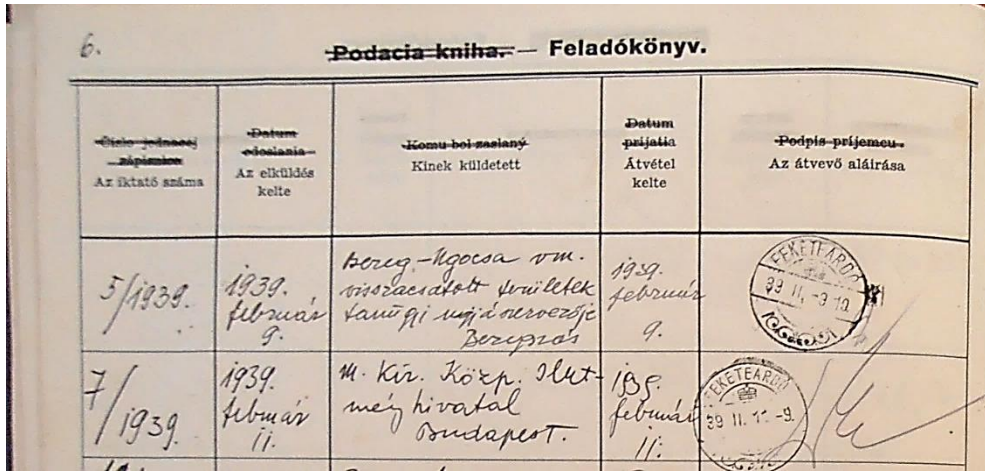 6.
Podacia kniha. — Feladókönyv.
Číslo jednacej
zápisnice
Az iktató száma
Datum
odoslania
Az elküldés
kelte
Komu bol zaslaný
Kinek küldetett
Datum
prijatia
Átvétel
kelte
Podpis príjemcu.
Az átvevő aláírása
5/1939.
1939.
február
9.
Bereg-Ugocsa vm.
visszacsatolt területek
tanügyi ujjászervezője
Beregszász
1939.
február
9.
FEKETEARDÓ
39 II. -9 10
7/1939.
1939.
február
11.
M. Kir. Közp. Illet-
mény hivatal
Budapest.
1939.
február
11.
FEKETEARDÓ
39 II. 11 -9.